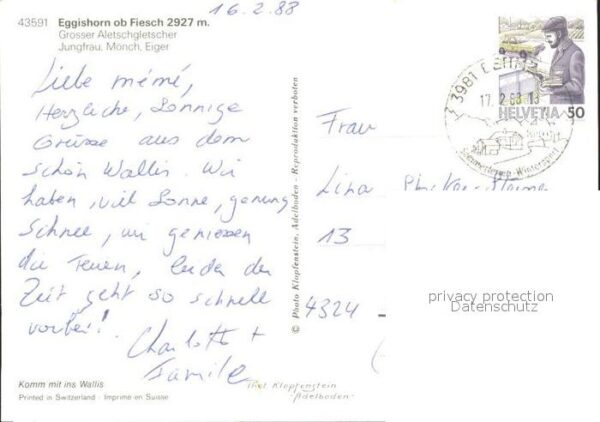 16.2.88
43591 Eggishorn ob Fiesch 2927 m.
Grosser Aletschgletscher
Jungfrau, Mönch, Eiger
Liebe mémé,
Herzliche, Sonnige
Grüsse aus dem
schön Wallis. Wir
haben, viel Sonne, genung
Schnee, wir geniessen
die Ferien, leider der
Zeit geht so schnell
vorbei!
Charlotte +
Familie
Komm mit ins Wallis
Printed in Switzerland · Imprime en Suisse
© Photo Klopfenstein, Adelboden - Reproduktion verboten
Phot. Klopfenstein
"Adelboden"
3981
17.2.88-13
Sommerferien-Wintersport
HELVETIA 50
Frau
Lina
13
4324
privacy protection
Datenschutz